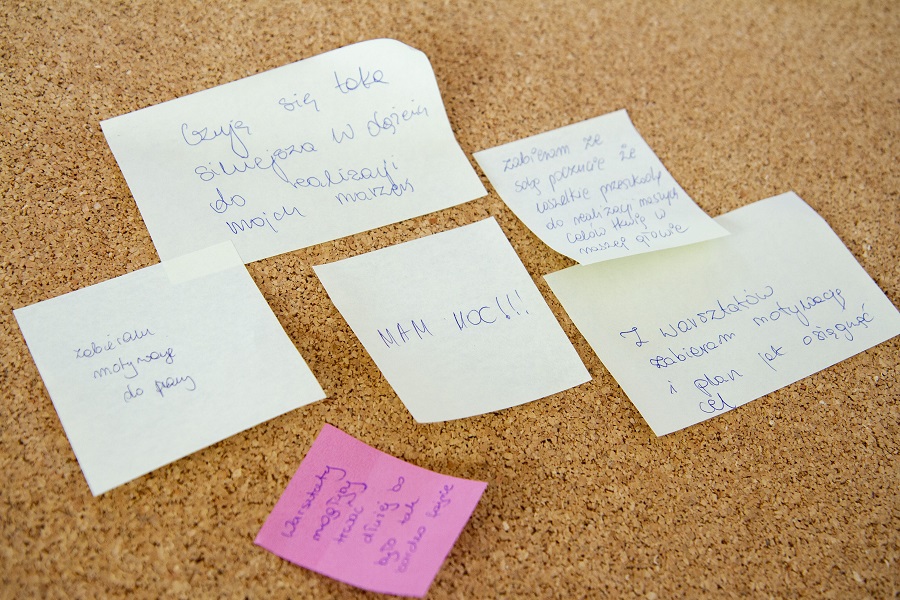 Czuję się taka
silniejsza w dążeniu
do realizacji
moich marzeń
zabieram ze
sobą poczucie że
wszelkie przeszkody
do realizacji naszych
celów tkwią w
naszej głowie
zabieram
motywację
do pracy
MAM MOC!!!
Z warsztatów
zabieram motywację
i plan jak osiągnąć
cel
Warsztaty
mogłyby
trwać
dłużej bo
było tak
bardzo fajnie